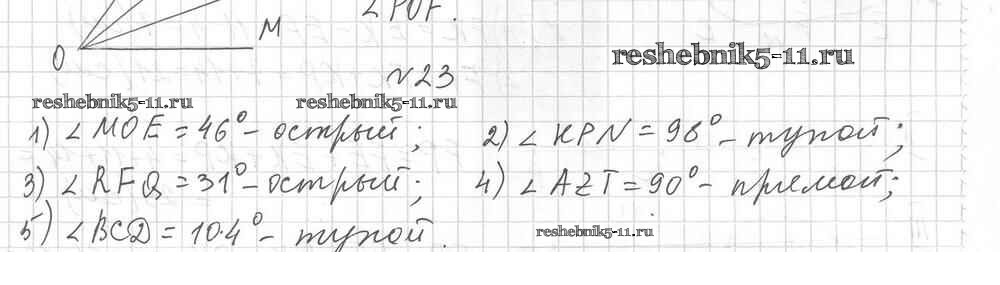 ∠POF.
M
O
reshebnik5-11.ru
№23
reshebnik5-11.ru reshebnik5-11.ru
1) ∠MOE = 46° - острый; 2) ∠KPN = 98° - тупой;
3) ∠RFQ = 31° - острый; 4) ∠AZT = 90° - прямой;
5) ∠BCD = 104° - тупой.
reshebnik5-11.ru